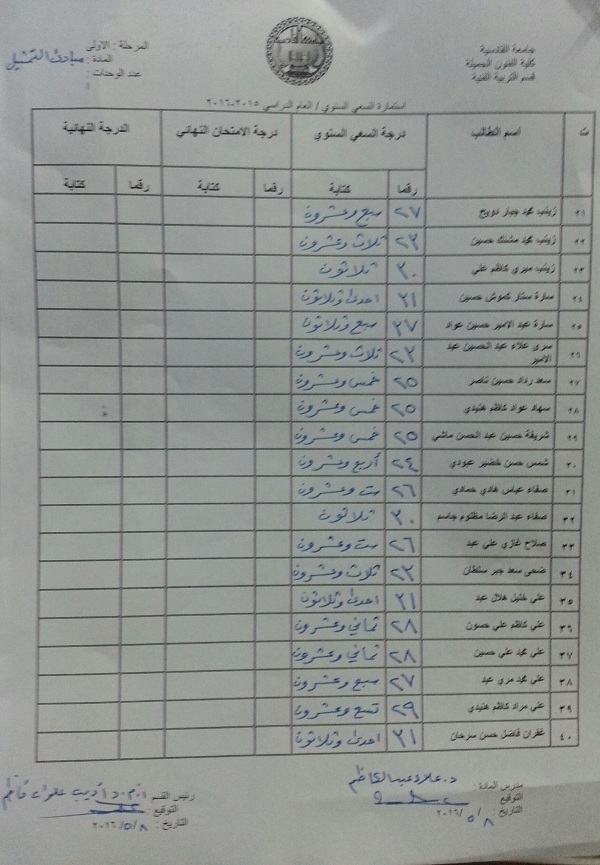 جامعة القادسية
كلية الفنون الجميلة
قسم التربية الفنية
المرحلة : الاولى
المادة : مبادئ التمثيل
عدد الوحدات :
استمارة السعي السنوي / العام الدراسي ٢٠١٥-٢٠١٦
ت اسم الطالب درجة السعي السنوي درجة الامتحان النهائي الدرجة النهائية
رقما كتابة رقما كتابة رقما كتابة
٢١ زينب محمد جبار دويج ٢٧ سبع وعشرون
٢٢ زينب محمد مشتت حسين ٢٣ ثلاث وعشرون
٢٣ زينب ميري كاظم علي ٣٠ ثلاثون
٢٤ سارة ستار كموش حسين ٣١ احدى وثلاثون
٢٥ سارة عبد الامير حسين عواد ٣٧ سبع وثلاثون
٢٦ سرى علاء عبد الحسين عبد الامير ٢٣ ثلاث وعشرون
٢٧ سعد رداد حسين ناصر ٢٥ خمس وعشرون
٢٨ سهاد عواد كاظم هنيدي ٢٥ خمس وعشرون
٢٩ شريفة حسين عبد الحسن ماشي ٢٥ خمس وعشرون
٣٠ شمس حسن خضير عبودي ٢٤ أربع وعشرون
٣١ صفاء عباس هادي حمادي ٢٦ ست وعشرون
٣٢ صفاء عبد الرضا مظلوم جاسم ٣٠ ثلاثون
٣٣ صلاح غازي علي عبد ٢٦ ست وعشرون
٣٤ ضحى سعد جبر سلطان ٢٣ ثلاث وعشرون
٣٥ علي خليل هلال عبد ٣١ احدى وثلاثون
٣٦ علي كاظم علي حسون ٢٨ ثماني وعشرون
٣٧ علي محمد علي حسين ٢٨ ثماني وعشرون
٣٨ علي محمد مري عبد ٢٧ سبع وعشرون
٣٩ علي مراد كاظم هنيدي ٢٩ تسع وعشرون
٤٠ غفران فاضل حسن سرحان ٣١ احدى وثلاثون
مدرس المادة : د. علاء عبد الكاظم
التوقيع :
التاريخ : ٨ / ٥ / ٢٠١٦
رئيس القسم أ.م.د اديب علوان كاظم
التوقيع :
التاريخ : ٨ / ٥ / ٢٠١٦